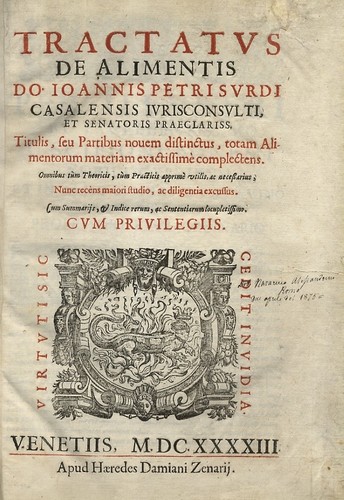 TRACTATVS
DE ALIMENTIS
DO. IOANNIS PETRI SVRDI
CASALENSIS IVRISCONSVLTI,
ET SENATORIS PRAECLARISS.
Titulis, seu Partibus nouem distinctus, totam Ali-
mentorum materiam exactissimè complectens.
Omnibus tùm Theoricis, tùm Practicis apprimè vtilis, ac necessarius;
Nunc recèns maiori studio, ac diligentia excussus.
Cum Summarijs, & Indice rerum, ac Sententiarum locupletissimo.
CVM PRIVILEGIIS.
VIRTVTI SIC
CEDIT INVIDIA
VENETIIS, M.DC.XXXXIII.
Apud Hæredes Damiani Zenarij.